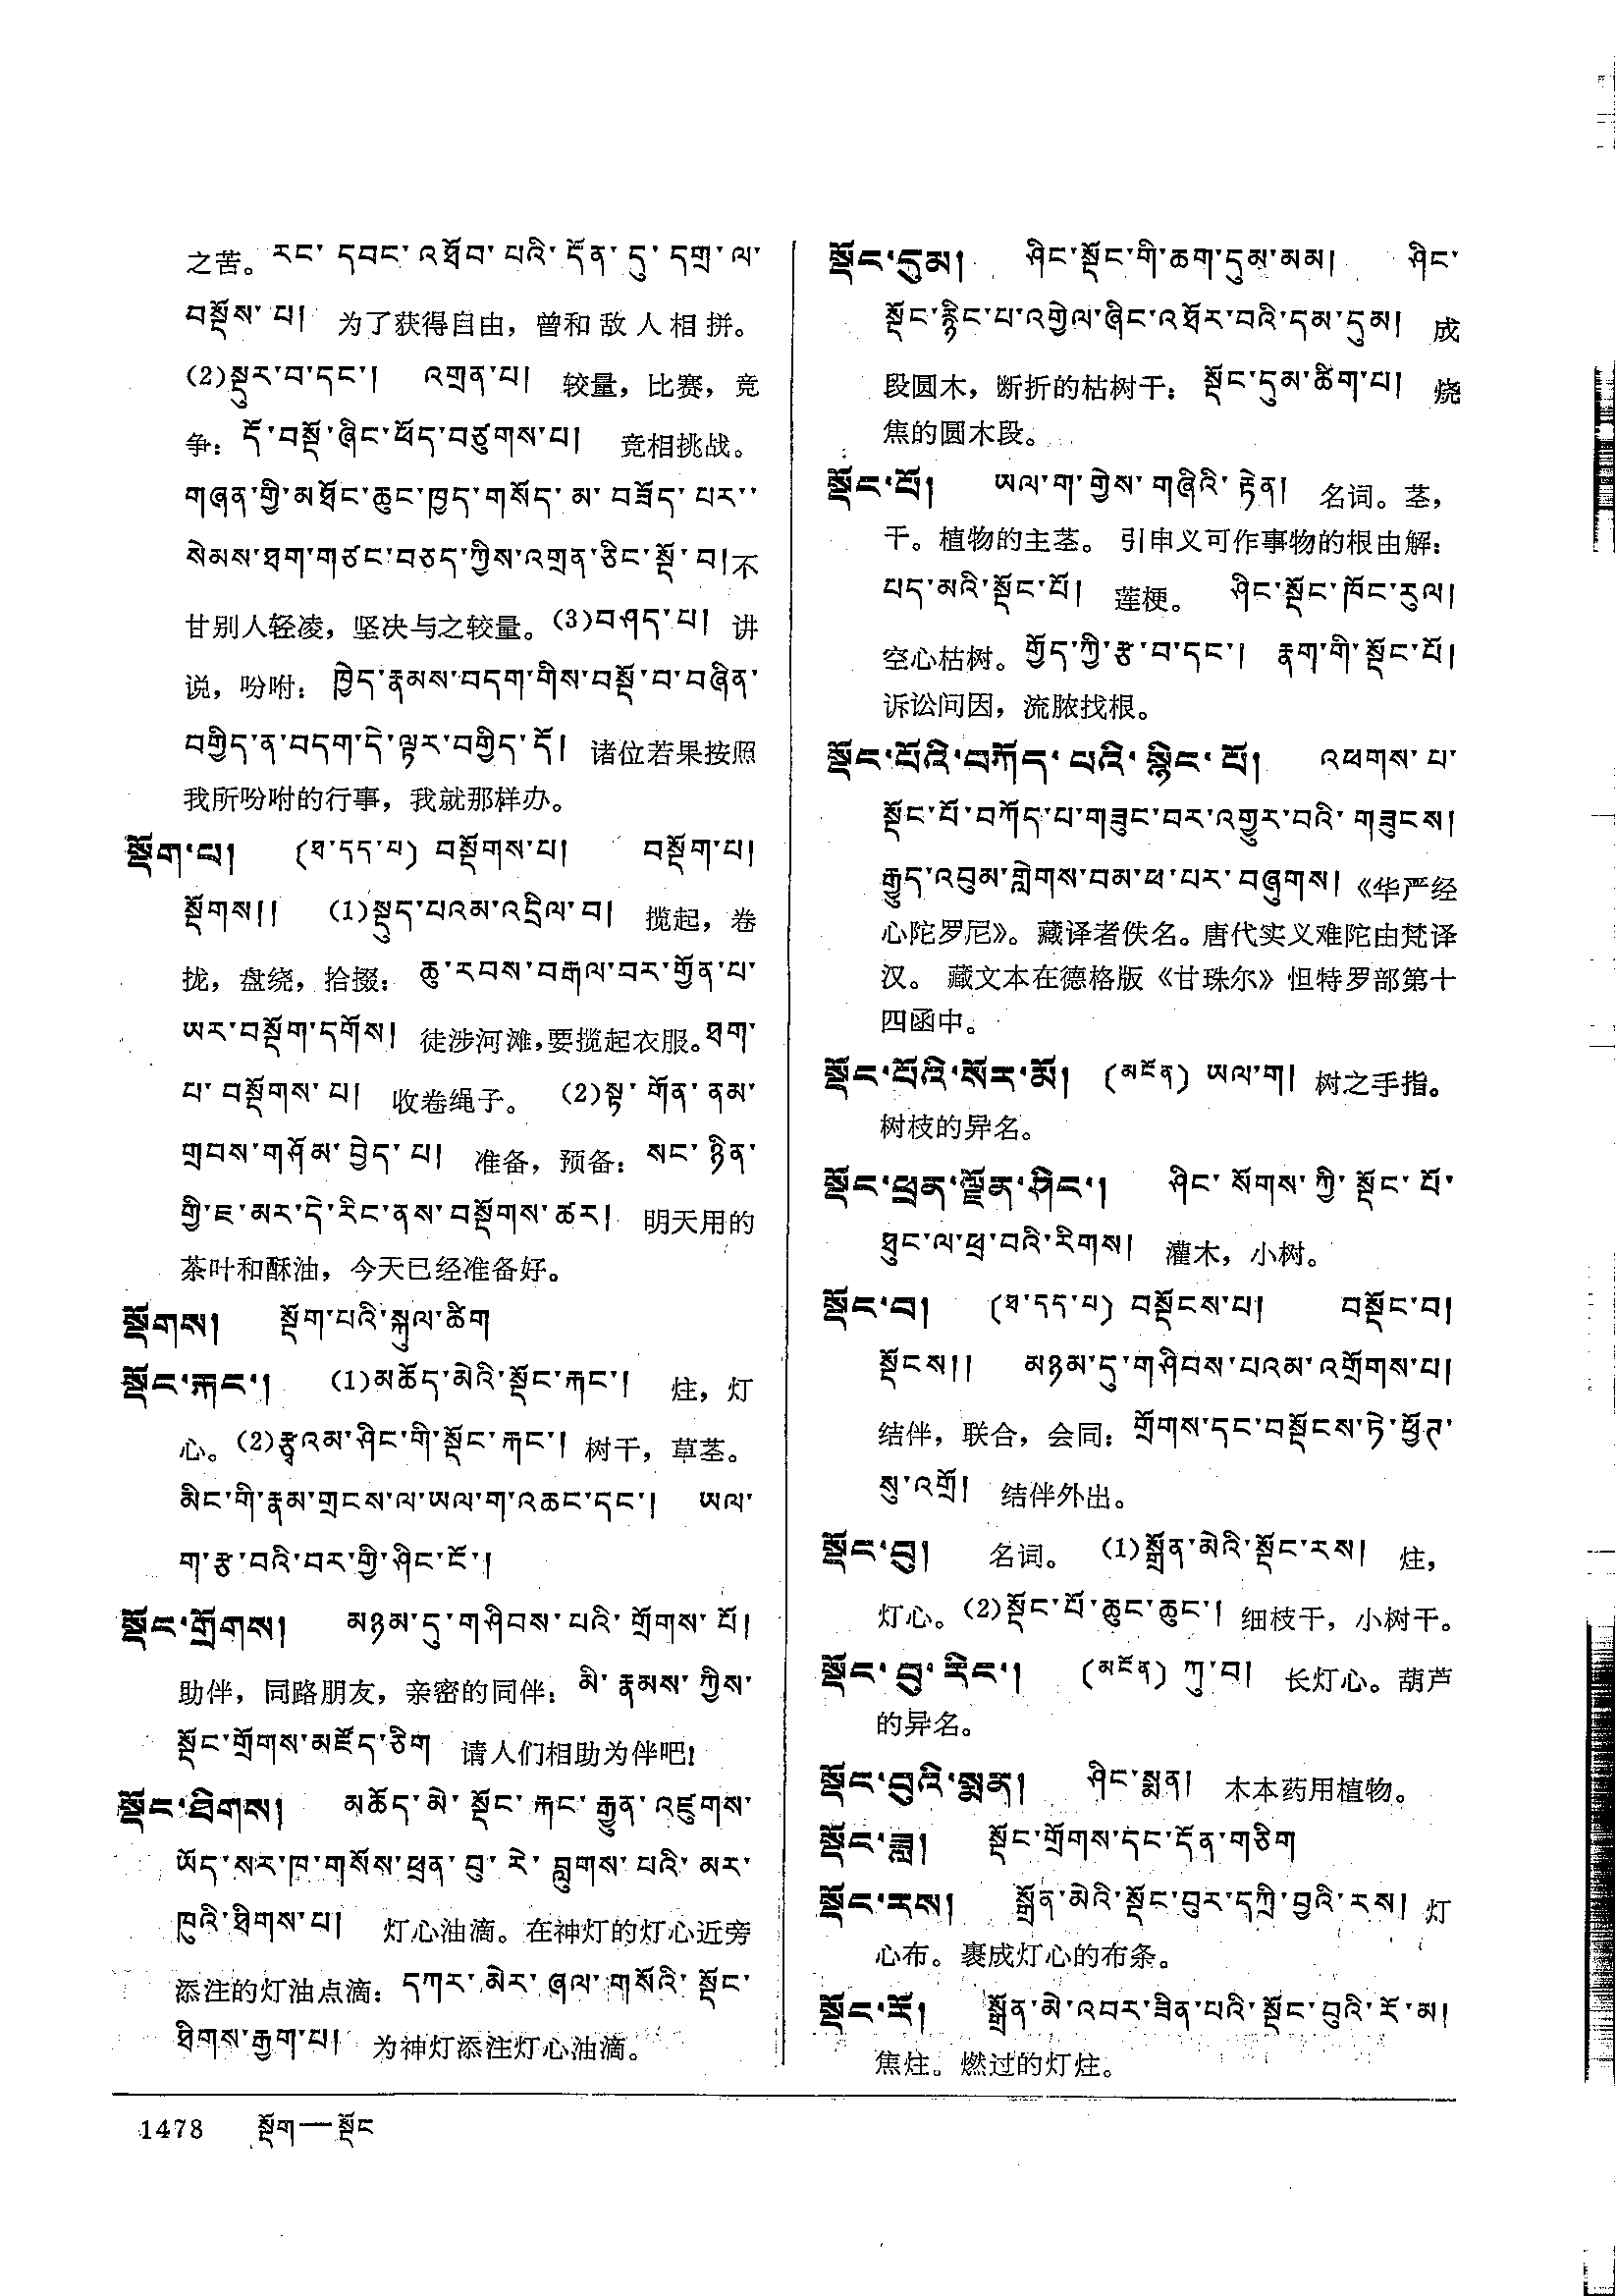 之苦。རང་ དབང་ འཐོབ་ པའི་ དོན་ དུ་ དགྲ་ ལ་
བསྡོས་ པ། 为了获得自由，曾和敌人相拼。
(2)སྡུར་བ་དང་། འགྲན་པ། 较量，比赛，竞
争：དོ་བསྡོ་ཞིང་ཕོད་བཙུགས་པ། 竞相挑战。
གཞན་གྱི་མཐོང་ཆུང་ཁྱད་གསོད་ མ་ བཟོད་ པར་
སེམས་ཐག་གཙང་བཅད་ཀྱིས་འགྲན་ཅིང་སྡོ་བ།不
甘别人轻凌，坚决与之较量。(3)བཤད་པ། 讲
说，吩咐：ཁྱེད་རྣམས་བདག་གིས་བསྡོ་བ་བཞིན་
བགྱིད་ན་བདག་དེ་ལྟར་བགྱིད་དོ། 诸位若果按照
我所吩咐的行事，我就那样办。
སྡོག་པ། (ཐ་དད་པ) བསྡོགས་པ། བསྡོག་པ།
སྡོགས།། (1)སྡུད་པའམ་འདྲིལ་བ། 揽起，卷
拢，盘绕，拾掇：ཆུ་རབས་བརྒལ་བར་གྱོན་པ་
ཡར་བསྡོག་དགོས། 徒涉河滩，要揽起衣服。ཐག་
པ་ བསྡོགས་ པ། 收卷绳子。 (2)སྟ་ གོན་ ནམ་
གྲབས་གཤོམ་ བྱེད་ པ། 准备，预备：སང་ ཉིན་
གྱི་ཇ་མར་དེ་རིང་ནས་བསྡོགས་ཚར། 明天用的
茶叶和酥油，今天已经准备好。
སྡོགས། སྡོག་པའི་སྐུལ་ཚིག
སྡོང་རྐང་། (1)མཆོད་མེའི་སྡོང་རྐང་། 炷，灯
心。(2)རྩྭའམ་ཤིང་གི་སྡོང་རྐང་། 树干，草茎。
མིང་གི་རྣམ་གྲངས་ལ་ཡལ་ག་འཆང་དང་། ཡལ་
ག་རྩ་བའི་བར་གྱི་ཤིང་ངོ་།
སྡོང་གྲོགས། མཉམ་དུ་གཤིབས་པའི་གྲོགས་པོ།
助伴，同路朋友，亲密的同伴：མི་ རྣམས་ ཀྱིས་
སྡོང་གྲོགས་མཛོད་ཅིག 请人们相助为伴吧！
སྡོང་ཐིགས། མཆོད་མེ་ སྡོང་ རྐང་ རྒྱུན་ འཛུགས་
ཡོད་སར་ཁ་གསོས་ཕྲན་བུ་རེ་བླུགས་པའི་མར་
ཁུའི་ཐིགས་པ། 灯心油滴。在神灯的灯心近旁
添注的灯油点滴：དཀར་མེར་ཞལ་གསོའི་སྡོང་
ཐིགས་རྒྱག་པ། 为神灯添注灯心油滴。
སྡོང་དུམ། ཤིང་སྡོང་གི་ཆག་དུམ་མམ། ཤིང་
སྡོང་རྙིང་པ་འགྱེལ་ཞིང་འཐོར་བའི་དམ་དུམ། 成
段圆木，断折的枯树干：སྡོང་དུམ་ཚིག་པ། 烧
焦的圆木段。
སྡོང་པོ། ཡལ་ག་གྱེས་གཞིའི་རྟེན། 名词。茎，
干。植物的主茎。引申义可作事物的根由解：
པད་མའི་སྡོང་པོ། 莲梗。 ཤིང་སྡོང་ཁོང་རུལ།
空心枯树。གྱོད་ཀྱི་རྩ་བ་དང་། རྣག་གི་སྡོང་པོ།
诉讼问因，流脓找根。
སྡོང་པོའི་བཀོད་པའི་སྙིང་པོ། འཕགས་པ་
སྡོང་པོ་བཀོད་པ་གཟུང་བར་འགྱུར་བའི་གཟུངས།
རྒྱུད་འབུམ་གླེགས་བམ་ཕ་པར་བཞུགས།《华严经
心陀罗尼》。藏译者佚名。唐代实义难陀由梵译
汉。藏文本在德格版《甘珠尔》怛特罗部第十
四函中。
སྡོང་པོའི་སོར་མོ། (མངོན) ཡལ་ག། 树之手指。
树枝的异名。
སྡོང་ཕྲན་ལྗོན་ཤིང་། ཤིང་ སོགས་ ཀྱི་ སྡོང་ པོ་
ཐུང་ལ་ཕྲ་བའི་རིགས། 灌木，小树。
སྡོང་བ། (ཐ་དད་པ) བསྡོངས་པ། བསྡོང་བ།
སྡོངས།། མཉམ་དུ་གཤིབས་པའམ་འགྲོགས་པ།
结伴，联合，会同：གྲོགས་དང་བསྡོངས་ཏེ་ཕྱོཊ་
སུ་འགྲོ། 结伴外出。
སྡོང་བུ། 名词。 (1)སྒྲོན་མེའི་སྡོང་རས། 炷，
灯心。(2)སྡོང་པོ་ཆུང་ཆུང་། 细枝干，小树干。
སྡོང་བུ་རིང་། (མངོན) ཀུ་བ། 长灯心。葫芦
的异名。
སྡོང་བུའི་སྨན། ཤིང་སྨན། 木本药用植物。
སྡོང་ཟླ། སྡོང་གྲོགས་དང་དོན་གཅིག
སྡོང་རས། སྒྲོན་མེའི་སྡོང་བུར་དཀྲི་བྱའི་རས། 灯
心布。裹成灯心的布条。
སྡོང་རོ། སྒྲོན་མེ་འབར་ཟིན་པའི་སྡོང་བུའི་རོ་མ།
焦炷。燃过的灯炷。
1478 སྡོག—སྡོང